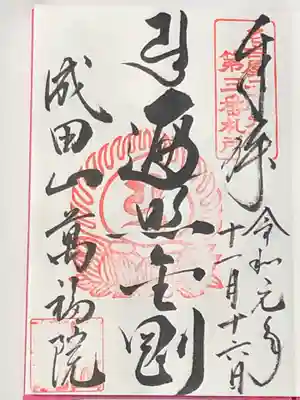 奉拝
第三番札所
令和元年
十一月十六日
遍照金剛
成田山萬福院